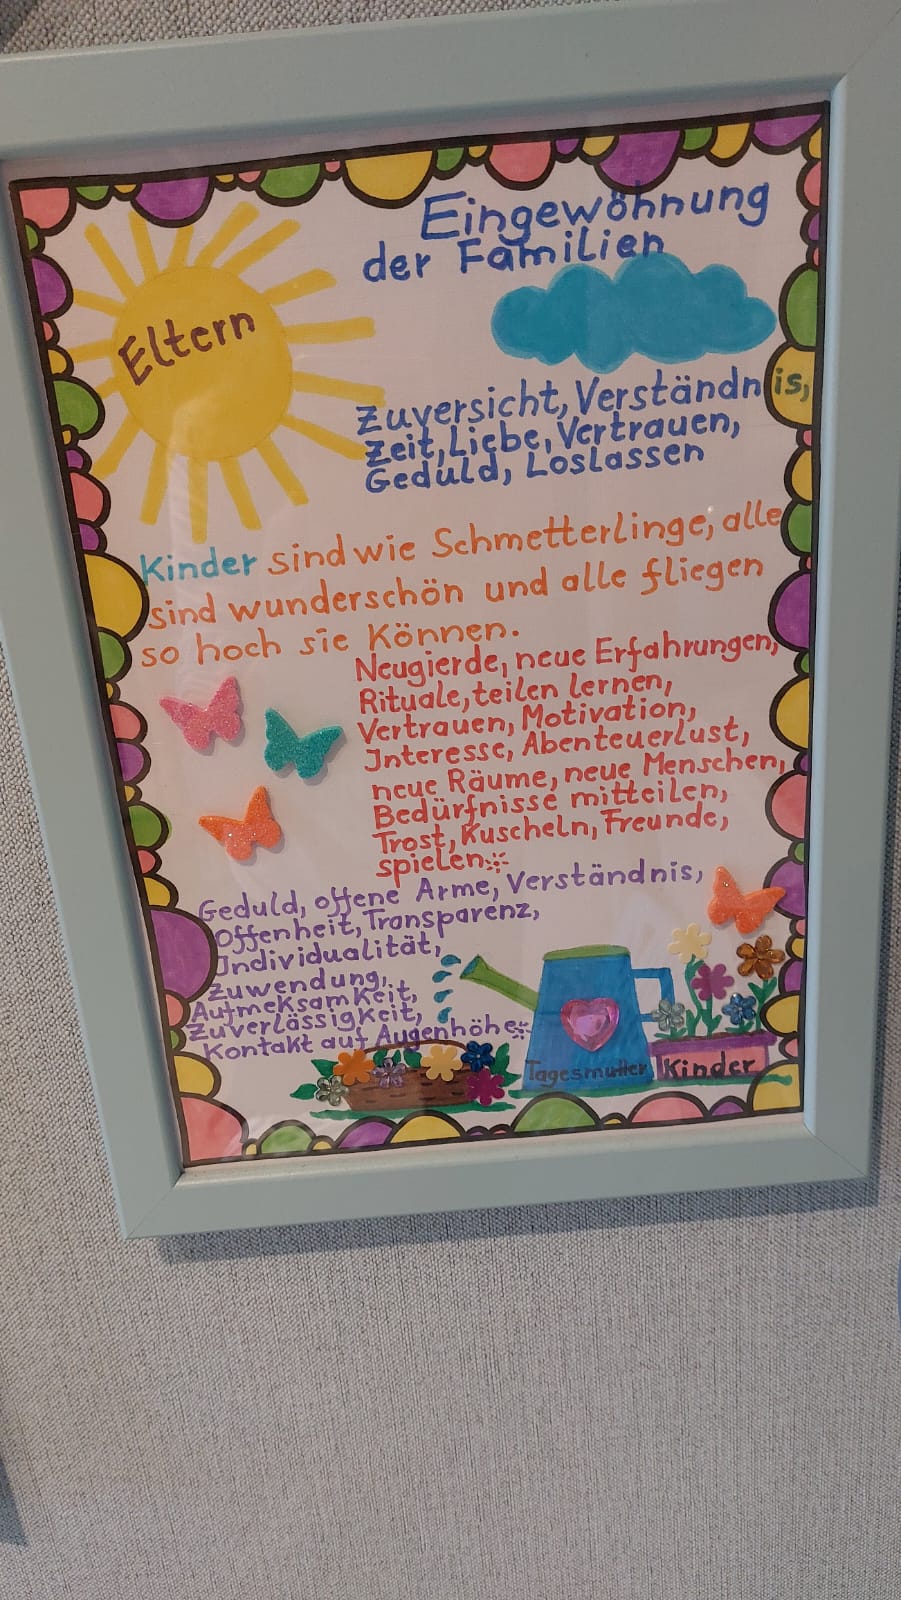 Eingewöhnung
der Familien
Eltern
Zuversicht, Verständnis,
Zeit, Liebe, Vertrauen,
Geduld, Loslassen
Kinder sind wie Schmetterlinge, alle
sind wunderschön und alle fliegen
so hoch sie können.
Neugierde, neue Erfahrungen,
Rituale, teilen lernen,
Vertrauen, Motivation,
Interesse, Abenteuerlust,
neue Räume, neue Menschen,
Bedürfnisse mitteilen,
Trost, Kuscheln, Freunde,
spielen
Geduld, offene Arme, Verständnis,
Offenheit, Transparenz,
Individualität,
Zuwendung,
Aufmeksamkeit,
Zuverlässigkeit,
Kontakt auf Augenhöhe
Tagesmutter Kinder